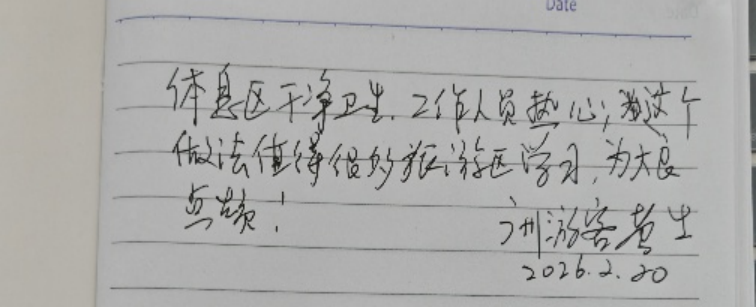 Date
休息区干净卫生，工作人员热心；这个
做法值得很多旅游区学习，为大良
点赞！
广州游客黄生
2026.2.20